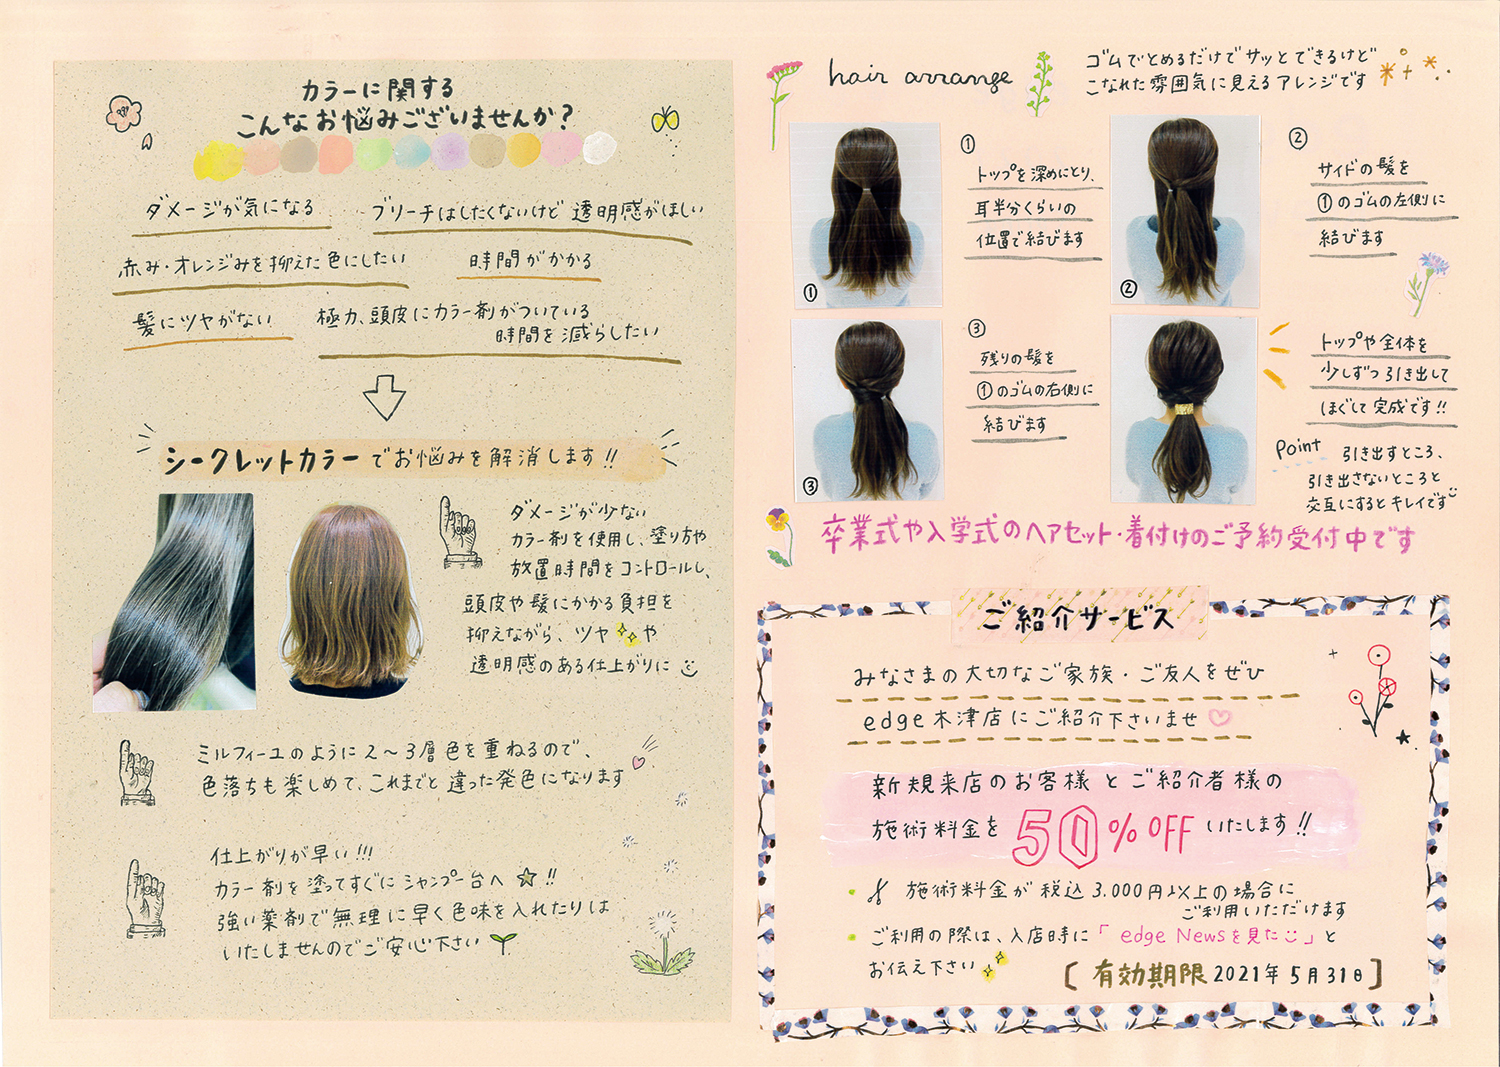 カラーに関する
こんなお悩みございませんか?
ダメージが気になる
ブリーチはしたくないけど 透明感がほしい
赤み・オレンジみを抑えた色にしたい
時間がかかる
髪にツヤがない
極力、頭皮にカラー剤がついている
時間を減らしたい
シークレットカラーでお悩みを解消します!!
ダメージが少ない
カラー剤を使用し、塗り方や
放置時間をコントロールし、
頭皮や髪にかかる負担を
抑えながら、ツヤや
透明感のある仕上がりに
ミルフィーユのように2〜3層色を重ねるので、
色落ちも楽しめて、これまでと違った発色になります
仕上がりが早い!!!
カラー剤を塗ってすぐにシャンプー台へ☆!!
強い薬剤で無理に早く色味を入れたりは
いたしませんのでご安心下さい
hair arrange
ゴムでとめるだけでサッとできるけど
こなれた雰囲気に見えるアレンジです
①
トップを深めにとり、
耳半分くらいの
位置で結びます
①
②
サイドの髪を
①のゴムの左側に
結びます
②
③
残りの髪を
①のゴムの右側に
結びます
③
トップや全体を
少しずつ引き出して
ほぐして完成です!!
Point
引き出すところ、
引き出さないところと
交互にするとキレイです
卒業式や入学式のヘアセット・着付けのご予約受付中です
ご紹介サービス
みなさまの大切なご家族・ご友人をぜひ
edge木津店にご紹介下さいませ♡
新規来店のお客様とご紹介者様の
施術料金を50%OFFいたします!!
施術料金が税込3.000円以上の場合に
ご利用いただけます
ご利用の際は、入店時に「edge Newsを見た」と
お伝え下さい
[有効期限2021年5月31日]